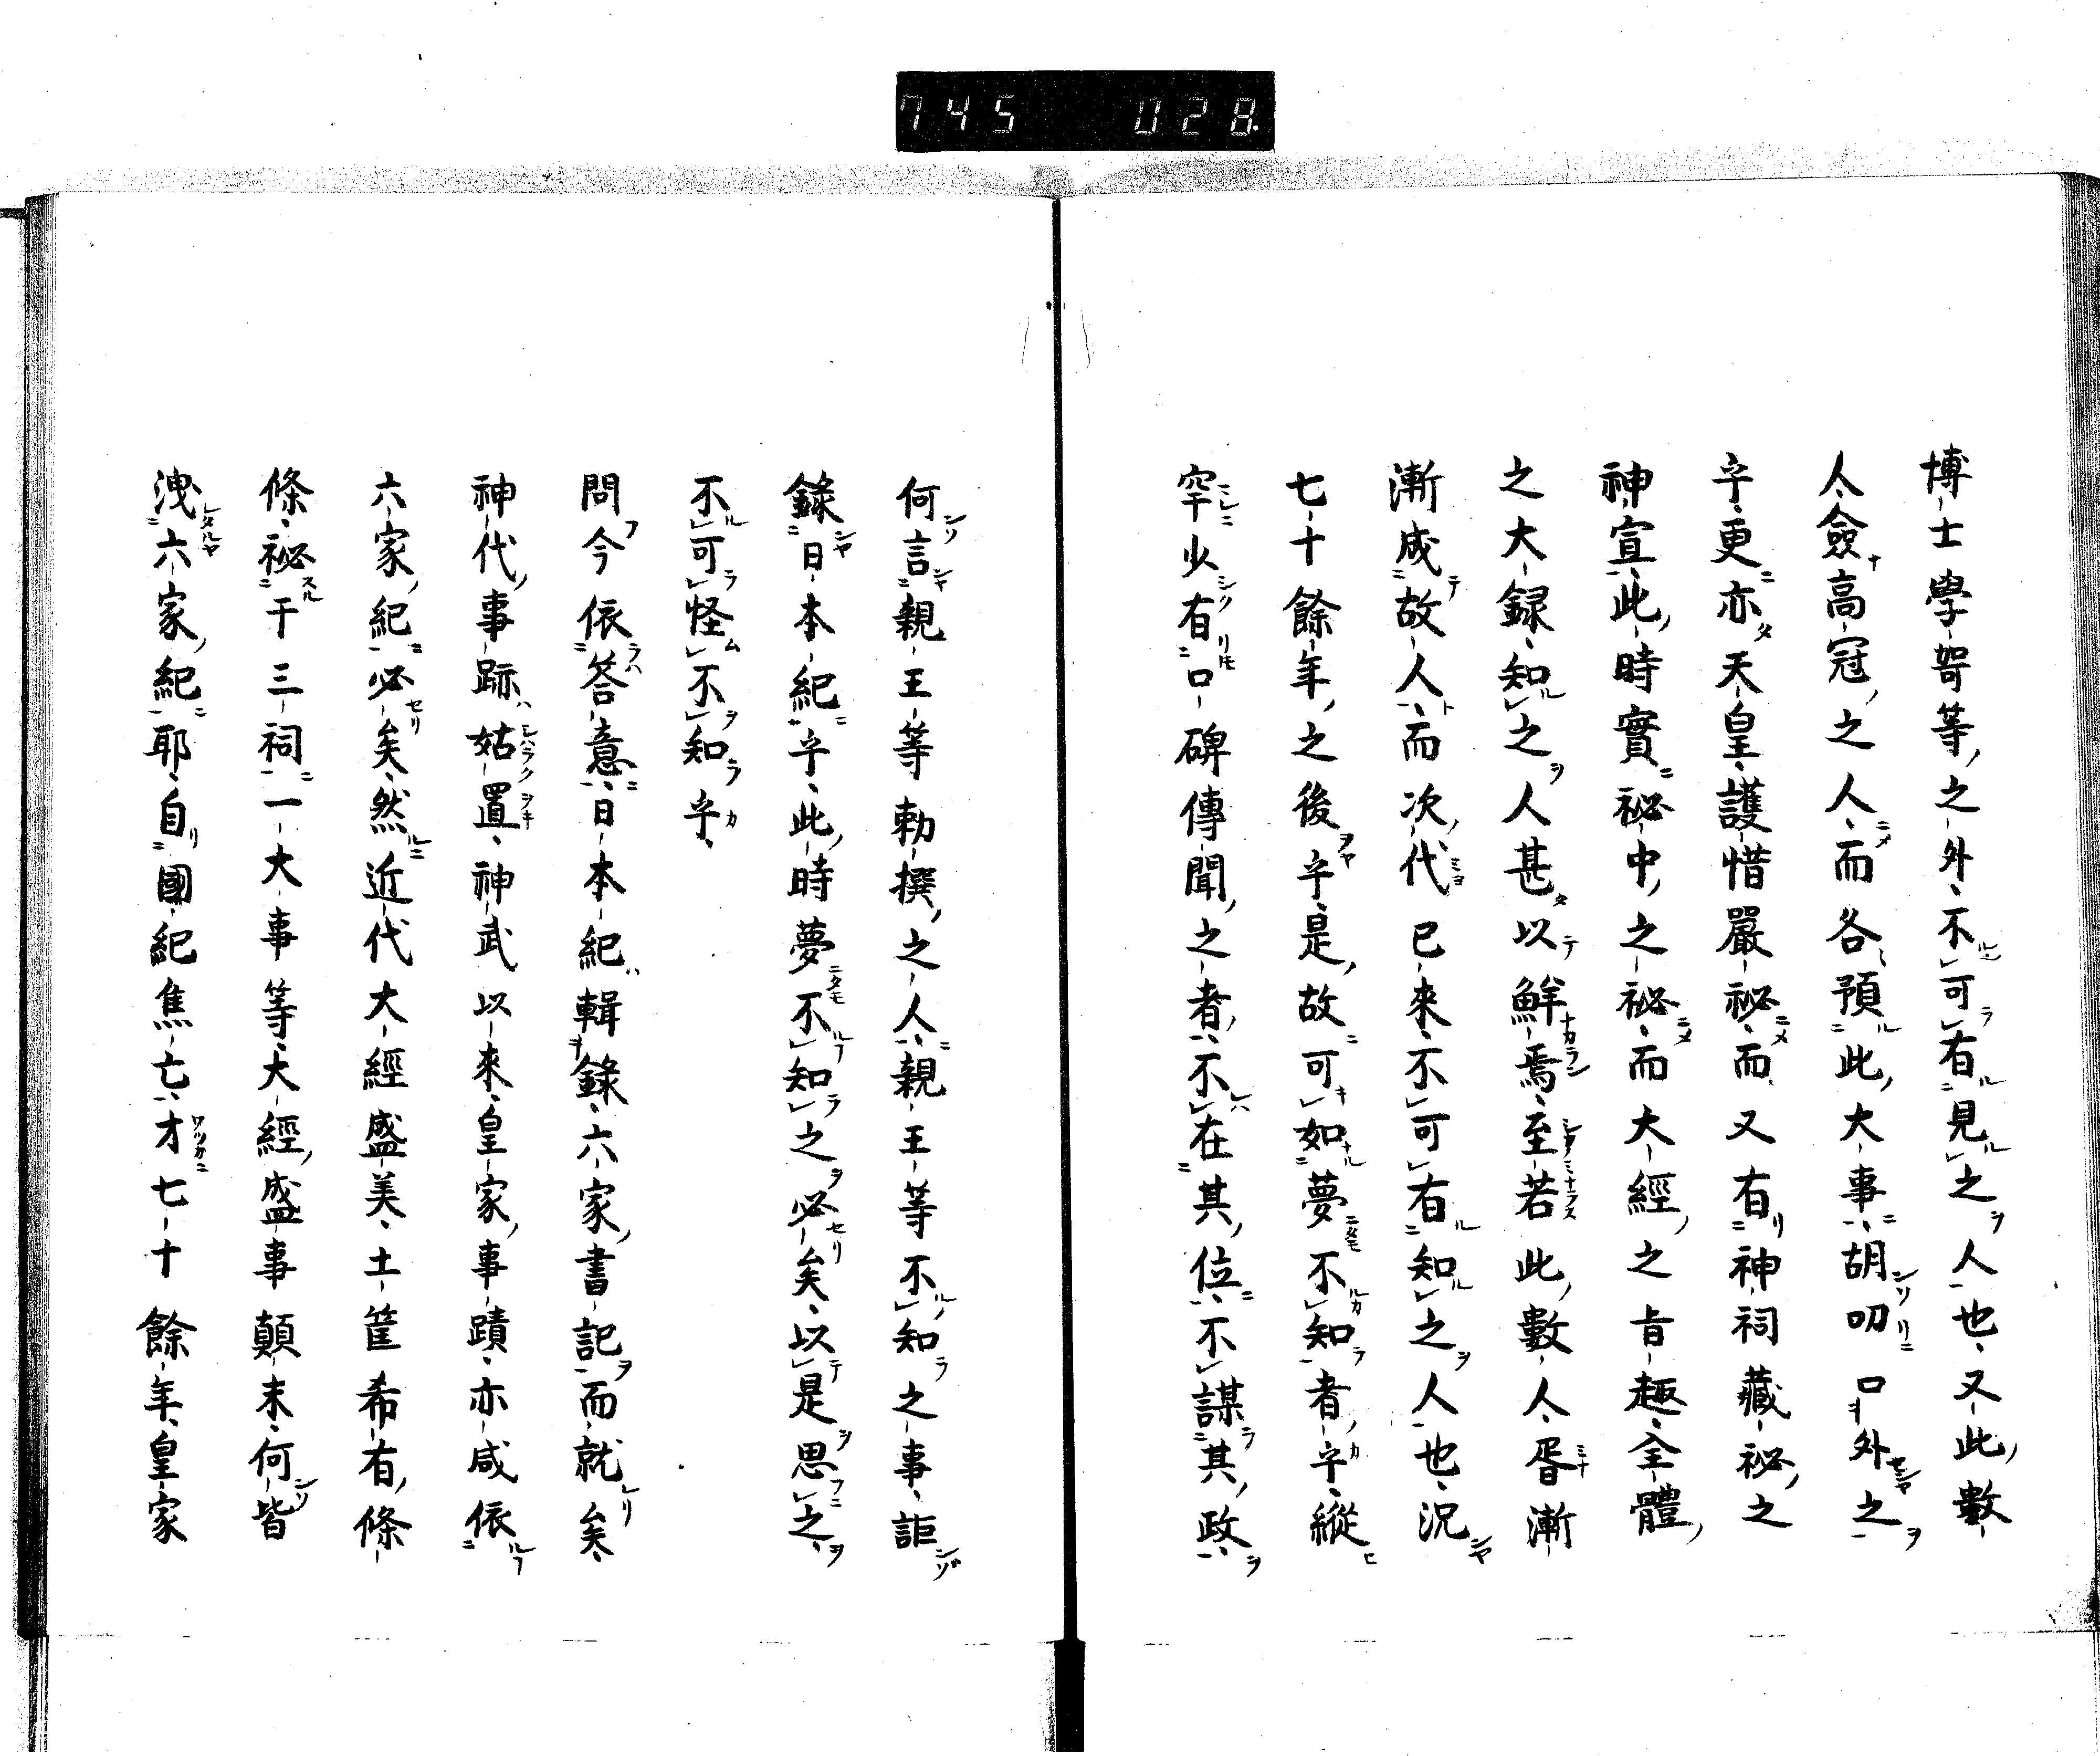 745 028
博士學哿等之外不可有見之人也又此數
人僉高冠之人而各預此大事胡叨口外之
乎更亦天皇護惜嚴祕而又有神祠藏祕之
神宣此時實祕中之祕而大經之旨趣全體
之大録知之人甚以鮮焉至若此數人胥漸
漸成故人而次代已來不可有知之人也況
七十餘年之後乎是故可如夢不知者乎縱
罕少有口碑傳聞之者不在其位不謀其政
何言親王等勅撰之人親王等不知之事詎
錄日本紀乎此時夢不知之必矣以是思之
不可怪不知乎
問今依答意日本紀輯錄六家書記而就矣
神代事跡姑置神武以來皇家事蹟亦咸依
六家紀必矣然近代大經盛美土筐希有條
條祕于三祠一大事等大經盛事顛末何皆
洩六家紀耶自國紀焦亡才七十餘年皇家